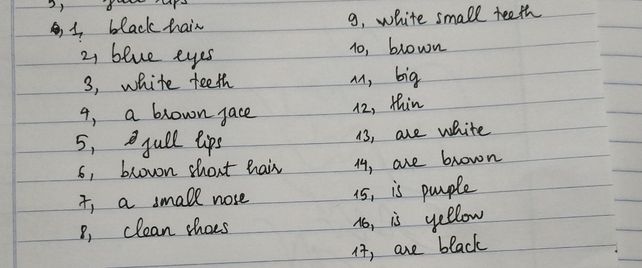 full lips
1, black hair
2, blue eyes
3, white teeth
4, a brown face
5, full lips
6, brown short hair
7, a small nose
8, clean shoes
9, white small teeth
10, brown
11, big
12, thin
13, are white
14, are brown
15, is purple
16, is yellow
17, are black